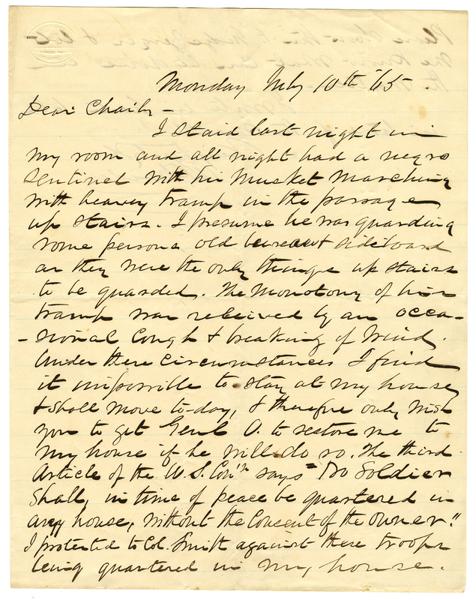 Monday July 10th '65.
Dear Charly -
I staid last night in
my room and all night had a negro
sentinel with his musket marching
with heavy tramp in the passage
up stairs. I presume he was guarding
some person a old sideboard
as they were the only things up stairs
to be guarded. The monotony of his
tramp was relieved by an occa-
-sional cough & breaking of wind.
Under these circumstances I find
it impossible to stay at my house
& shall move to-day, & therefore only wish
you to get Genl O. to restore me to
my house if he will do so. The third
Article of the U.S. Con'n says "No Soldier
shall, in time of peace be quartered in
any house, without the consent of the owner."
I protested to Col. Smith against these troops
being quartered in my house.